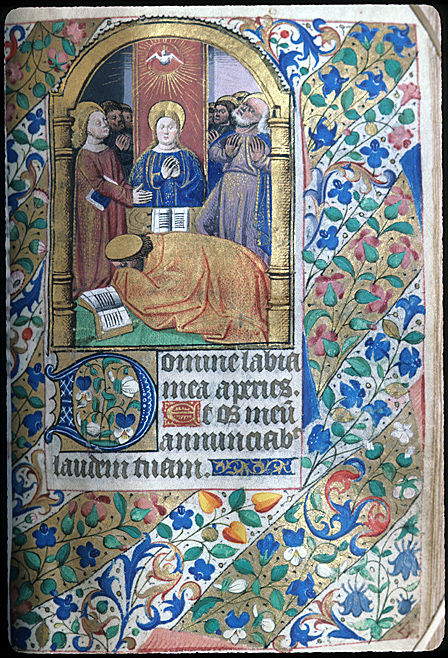 Domine labia
mea aperies.
Et os meū
annunciab⁹
laudem tuam.